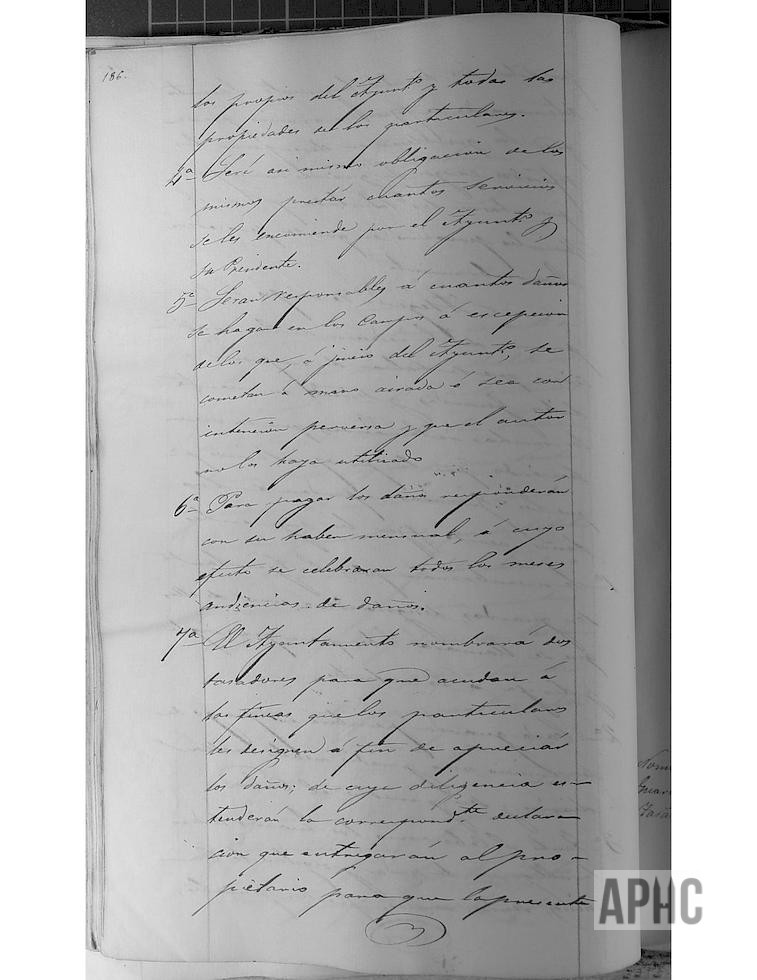 186.
los propios del Ayunt.º y todas las
propiedades de los particulares.
4ª Será asi mismo obligacion de los
mismos prestár cuantos servicios
se les encomiende por el Ayunt.º y
su Presidente.
5ª Seran responsables á cuantos daños
se hagan en los campos á escepcion
de los que, á juicio del Ayunt.º, se
cometan á mano airada ó sea con
intención perversa y que el autor
no los haya utilizado
6ª Para pagar los daños responderán
con su haber mensual, á cuyo
efecto se celebraran todos los meses
audiencias de daños.
7ª El Ayuntamiento nombrará dos
tasadores para que acudan á
las fincas que los particulares
les designen á fin de apreciár
los daños; de cuya diligencia es-
tenderán la correspond.te declara-
cion que entregarán al pro-
pietario para que la presente
APHC